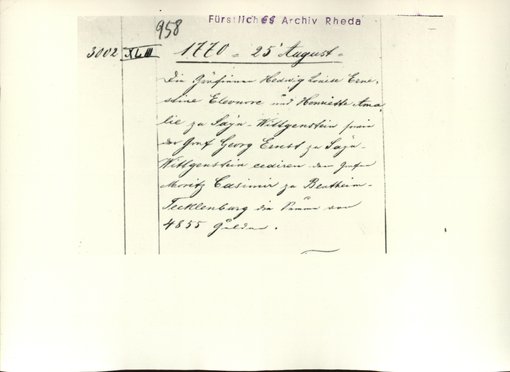 Fürstliches Archiv Rheda
958
3002 XLIII 1770 - 25 August -
Die Gräfinnen Hedwig Louise Erne-
stine Eleonore und Henriette Ama-
lie zu Sayn-Wittgenstein sowie
der Graf Georg Ernst zu Sayn-
Wittgenstein cediren dem Grafen
Moritz Casimir zu Bentheim-
Tecklenburg die Summe von
4855 Gulden.